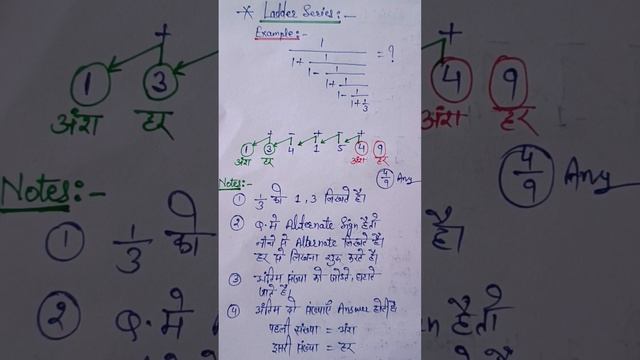 * Ladder Series:-
Example:-
1
1+ 1
1- 1
1+ 1
1- 1
1+ 1/3
= ?
+ - + - +
1 3 4 1 5 4 9
अंश हर अंश हर
4/9 Ans
Notes:-
① 1/3 को 1, 3 लिखते है।
② Q. मे Alternate Sign है तो
नीचे से Alternate लिखते है।
हर से लिखना शुरू करते है।
③ अंतिम संख्या को जोड़ते, घटाते
जाते है।
④ अंतिम दो संख्याएँ Answer होती है
पहली संख्या = अंश
दूसरी संख्या = हर